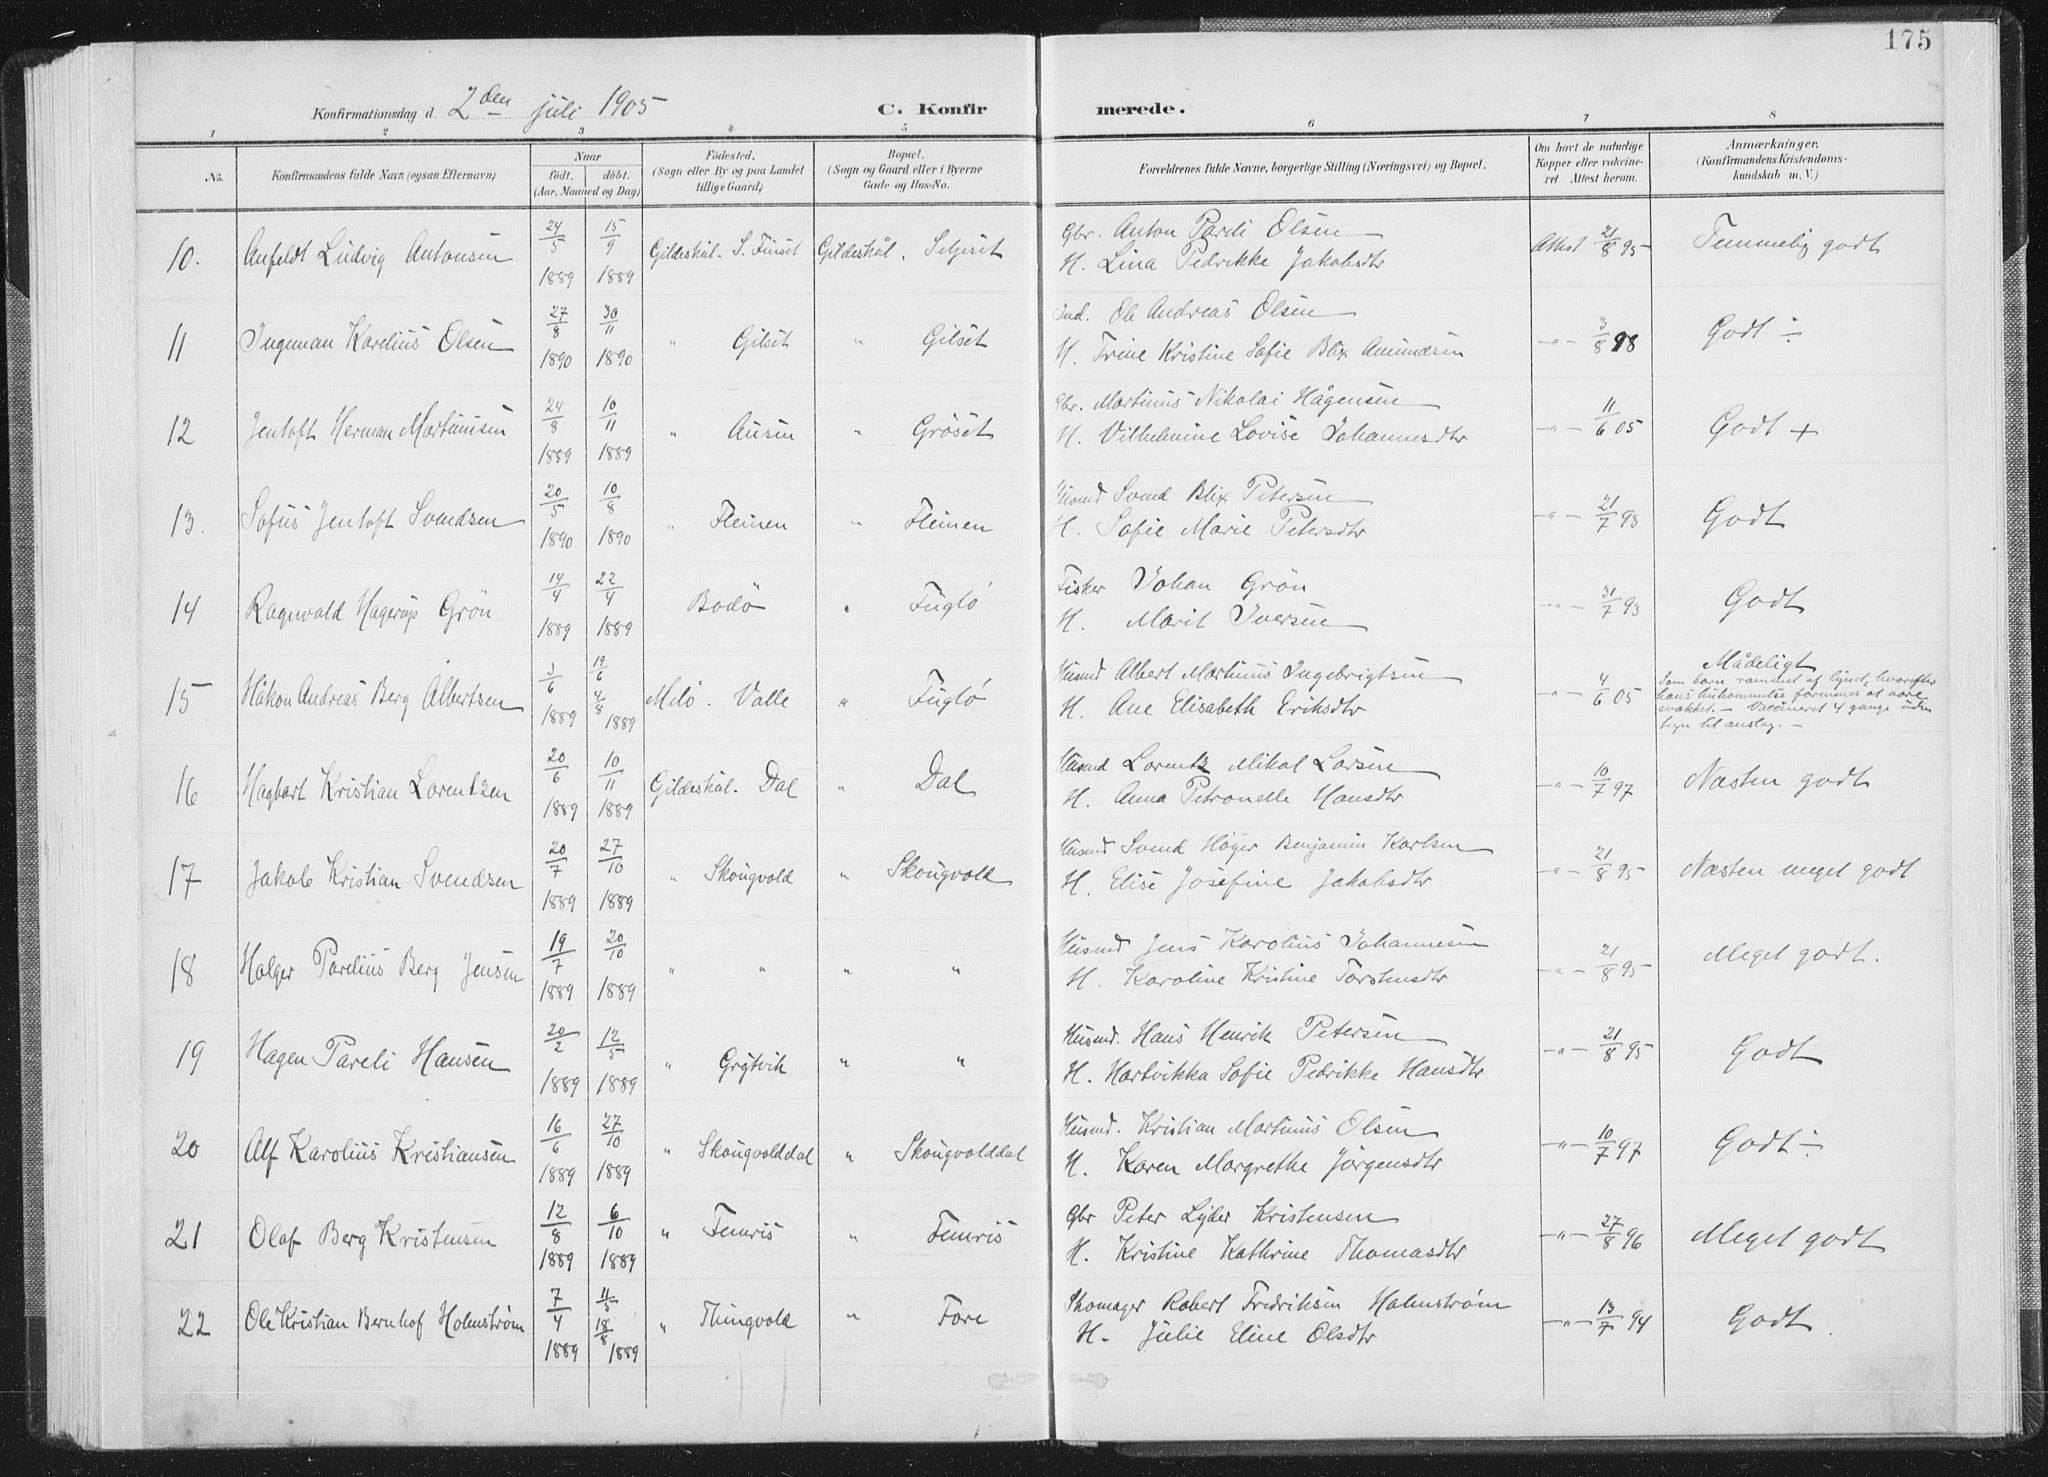 175
Konfirmationsdag d. 2den juli 1905
C. Konfirmerede.
1 2 3 4 5 6 7 8
No.
Konfirmandens fulde Navn (ogsaa Efternavn)
Naar
födt. döbt.
(Aar, Maaned og Dag)
Födested.
(Sogn eller By og paa Landet
tillige Gaard)
Bopæl.
(Sogn og Gaard eller i Byerne
Gade og Hus-No.
Forældrenes fulde Navne, borgerlige Stilling (Næringsvei) og Bopæl.
Om havt de naturlige
Kopper eller vakcine-
ret Attest herom.
Anmærkninger.
(Konfirmandens Kristendoms-
kundskab m. V.)
10. Anfeldt Ludvig Antonsen 24/5 1889 15/9 1889 Gildeskål. S. Finset Gildeskål. Seljeset
Gbr. Anton Pareli Olsen
H. Lina Pedrikke Jakobsdtr
Attest 21/8 95 Temmelig godt
11 Ingeman Karelius Olsen 27/8 1890 30/11 1890 " Gilset " Gilset
Ind. Ole Andreas Olsen
H. Trine Kristine Sofie Blix Amundsen
-"- 3/8 98 Godt ÷
12 Jentoft Herman Martinusen 24/8 1889 10/11 1889 " Ausen " Gröset
Gbr. Martinus Nikolai Hågensen
H. Vilhelmine Lovise Johannesdtr
-"- 11/6 05 Godt +
13. Sofus Jentoft Svendsen 20/5 1890 10/8 1890 " Fleinen " Fleinen
Husmd Svend Blix Petersen
H. Sofie Marie Petersdtr
-"- 21/7 93 Godt
14 Ragnvald Hagerup Grön 14/4 1889 22/4 1889 Bodö " Fuglö
Fisker Johan Grön
H. Marit Iversen
-"- 31/7 93 Godt
15 Håkon Andreas Berg Albertsen 3/6 1889 19/6 4/8 1889 Melö. Valle " Fuglö
Husmd Albert Martinus Ingebrigtsen
H. Ane Elisabeth Eriksdtr
-"- 4/6 05 Mådeligt
Som barn rammet af lynet, hvorefter
hans hukommelse formenes at være
svækket. - Vaccineret 4 gange uden
tegn til anslag. -
16 Hagbart Kristian Lorentzen 20/6 1889 10/11 1889 Gildeskål. Dal " Dal
Husmd Lorentz Mikal Larsen
H. Anna Petronelle Hansdtr
-"- 10/7 97 Næsten godt
17 Jakob Kristian Svendsen 20/7 1889 27/10 1889 " Skougvold " Skougvold
Husmd Svend Höyer Benjamin Karlsen
H. Elise Josefine Jakobsdtr
-"- 21/8 95 Næsten meget godt
18 Holger Parelius Berg Jensen 19/7 1889 20/10 1889 " " " "
Husmd Jens Karolius Johannesen
H. Karoline Kristine Torstensdtr
-"- 21/8 95 Meget godt.
19 Hagen Pareli Hansen 20/2 1889 12/5 1889 " Grytvik " "
Husmd. Hans Henrik Petersen
H. Hartvikka Sofie Pedrikke Hansdtr
-"- 21/8 95 Godt
20 Alf Karolius Kristiansen 16/6 1889 27/10 1889 " Skougvolddal " Skougvolddal
Husmd. Kristian Martinus Olsen
H. Karen Margrethe Jörgensdtr
-"- 10/7 97 Godt ÷
21 Olaf Berg Kristensen 12/8 1889 6/10 1889 " Femris " Femris
Gbr Peter Lyder Kristensen
H. Kristine Kathrine Thomasdtr
-"- 27/8 96 Meget godt
22 Ole Kristian Bernhof Holmström 7/4 1889 11/5 18/8 1889 " Thingvold " Fore
Skomager Robert Fredriksen Holmström
H. Julie Eline Olsdtr
-"- 13/7 94 Godt.